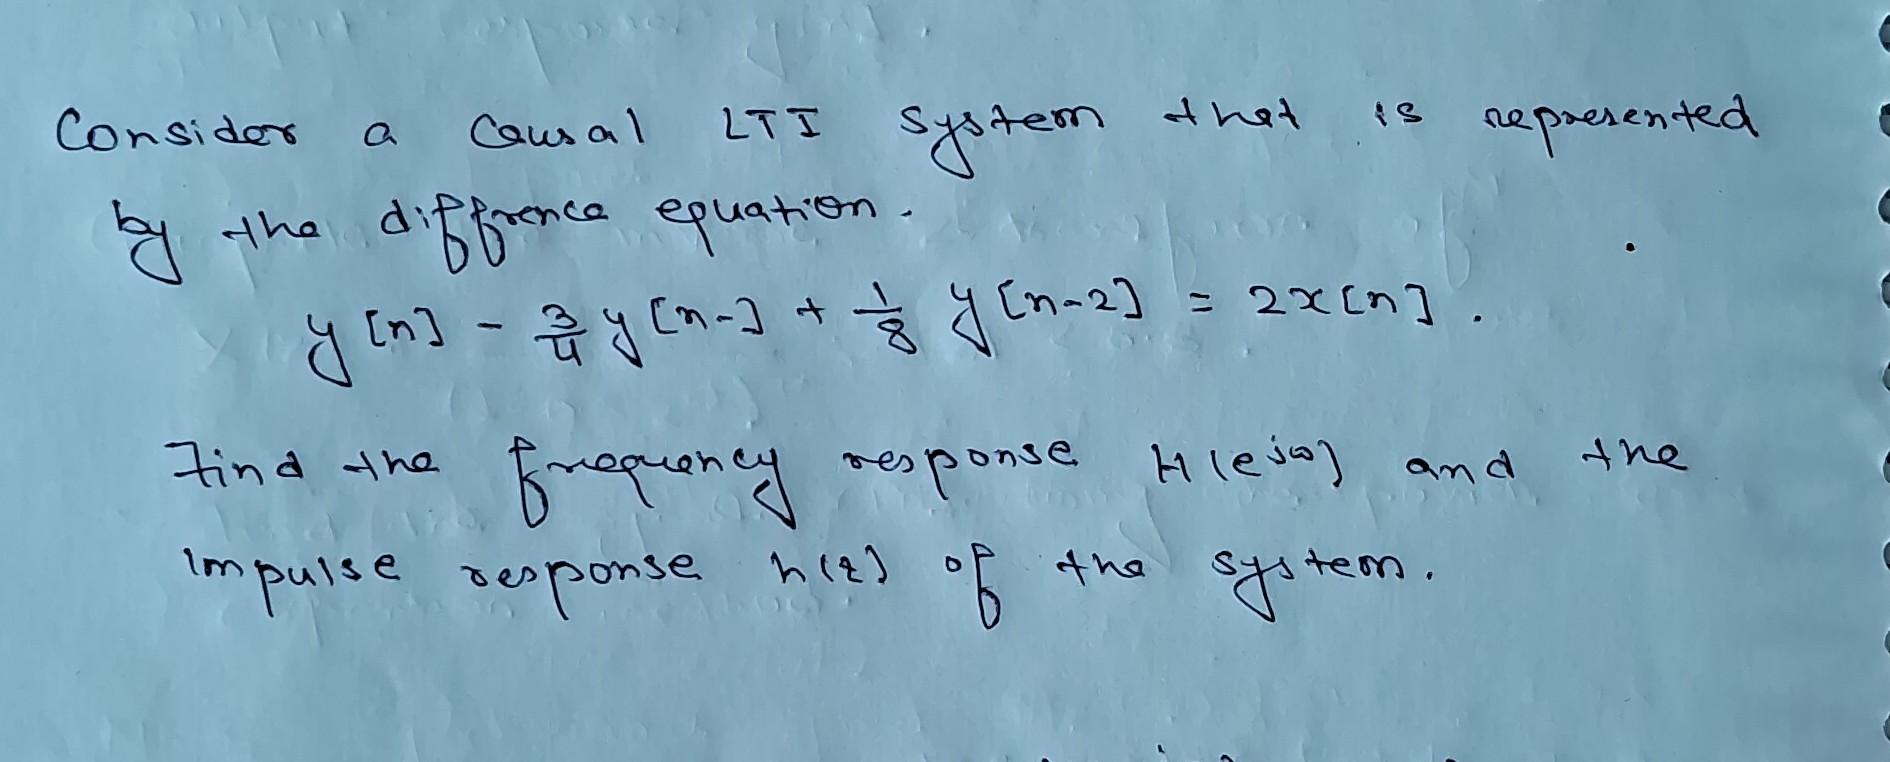 Consider a Causal LTI system that is represented
by the diffrence equation.
y[n] - 3/4 y[n-] + 1/8 y[n-2] = 2x[n].
Find the frequency response H(ejω) and the
impulse response h(z) of the system.